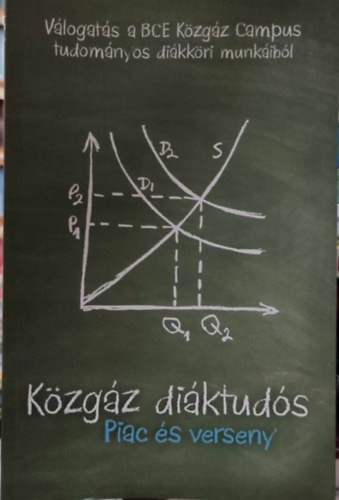 Válogatás a BCE Közgáz Campus
tudományos diákköri munkáiból
D2
S
P2
D1
P1
Q1 Q2
Közgáz diáktudós
Piac és verseny